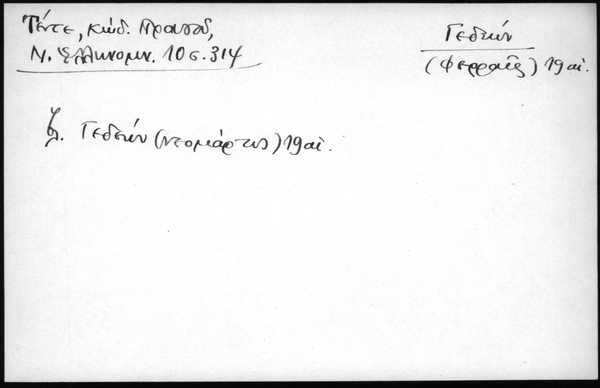 Τέντε, κώδ. Πραστοῦ,
Ν. Ἑλληνομν. 10 σ. 314
Γεδεών
(Φερραῖς) 19 αἰ.
βλ. Γεδεών (νεομάρτυς) 19 αἰ.